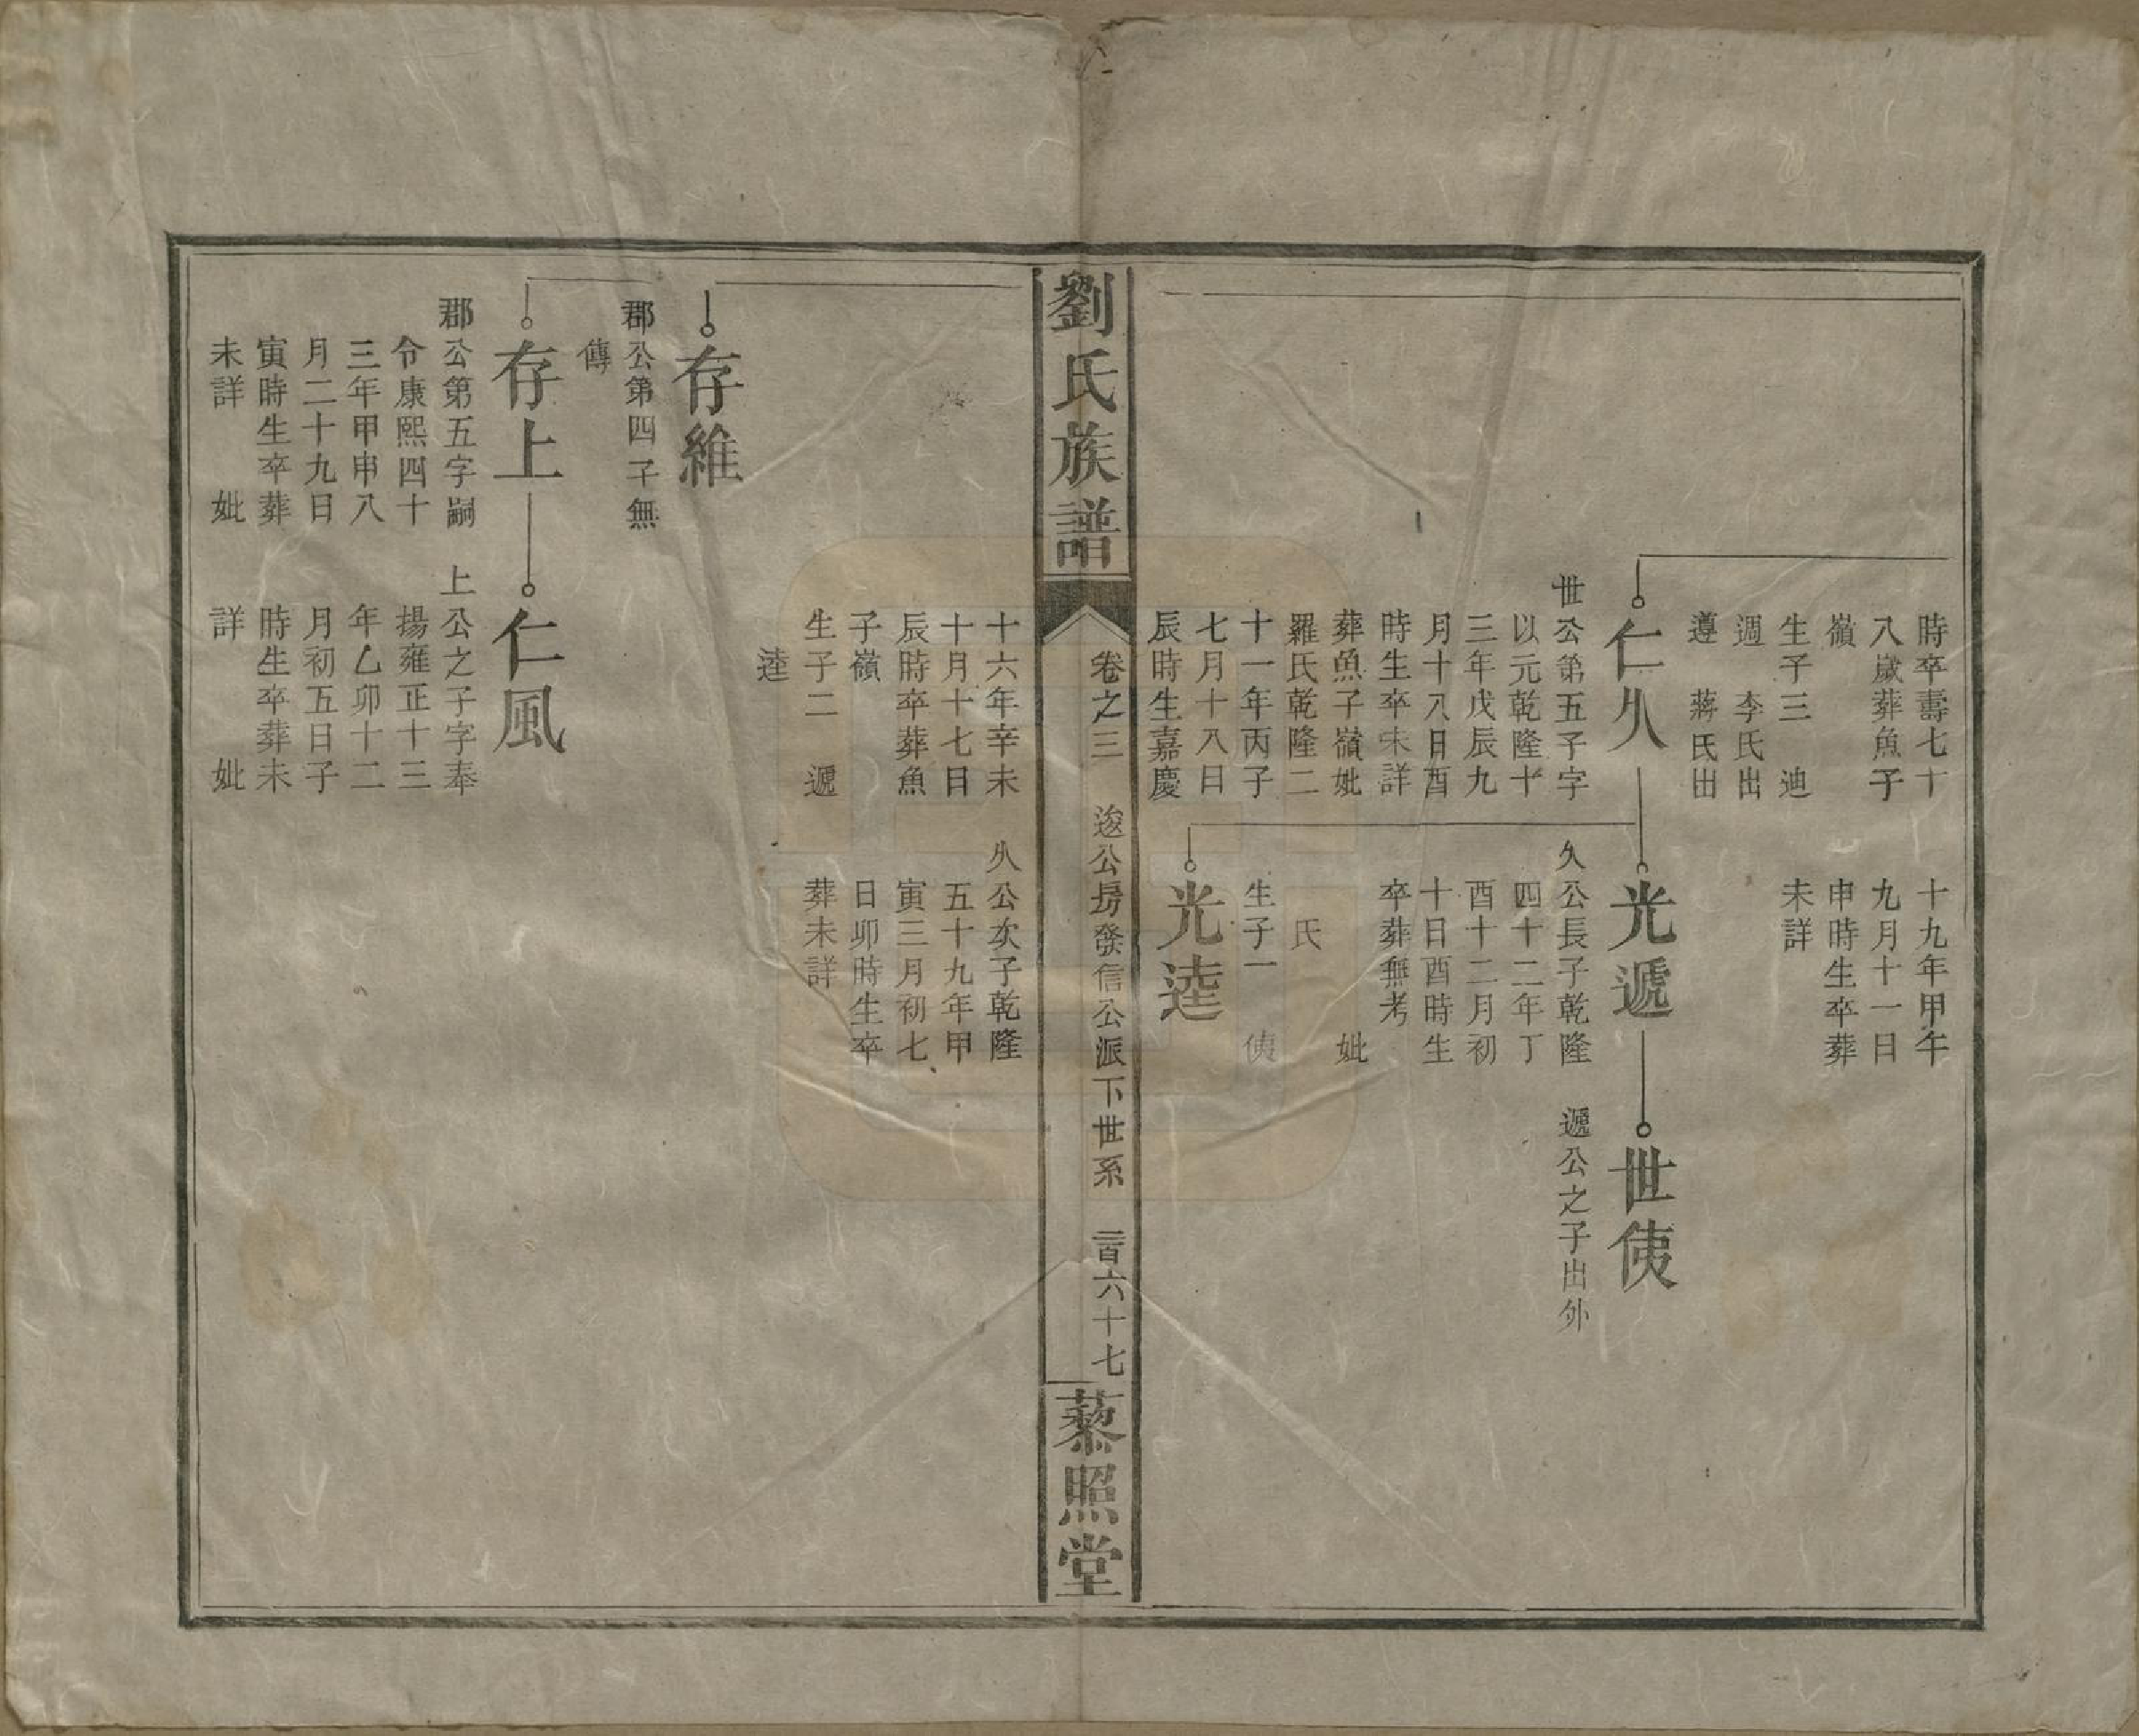 時卒壽七十
八歲葬魚子
嶺
生子三　迪
週　李氏出
遵　蔣氏出
十九年甲午
九月十一日
申時生卒葬
未詳
仁久
世公第五子字
以元乾隆十
三年戊辰九
月十八日酉
時生卒未詳
葬魚子嶺妣
羅氏乾隆二
十一年丙子
七月十八日
辰時生嘉慶
光遞
久公長子乾隆
四十二年丁
酉十二月初
十日酉時生
卒葬無考
妣
氏
生子一
世
遞公之子出外
光逵
劉氏族譜
卷之三
逡公房發信公派下世系
二百六十七
藜照堂
十六年辛未
十月十七日
辰時卒葬魚
子嶺
生子二　遞
逵
久公次子乾隆
五十九年甲
寅三月初七
日卯時生卒
葬未詳
存維
郡公第四子無
傳
存上
郡公第五字嗣
令康熙四十
三年甲申八
月二十九日
寅時生卒葬
未詳　　妣
仁風
上公之子字奉
揚雍正十三
年乙卯十二
月初五日子
時生卒葬未
詳　　　妣